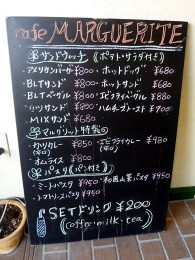 cafe MARGUERITE
サンドウィッチ (ポテト・サラダ付き)
・アメリカンバーガー ¥800 ・ホットドッグ ¥680
・BLTサンド ¥800 ・ホットサンド ¥680
・BLTベーグル ¥800 ・エビフライベーグル ¥880
・ミックスサンド ¥800 ・ハムチーズトースト ¥700
・MIXサンド ¥680
マルグリット特製
・カツカレー ¥850 ・エビフライカレー ¥980
(辛口) (辛口)
・オムライス ¥800
パスタ (パン付き)
・ミートパスタ ¥950 ・和風山菜パスタ ¥950
・トマトソースパスタ ¥950
SETドリンク ¥200
(coffe・milk・tea)